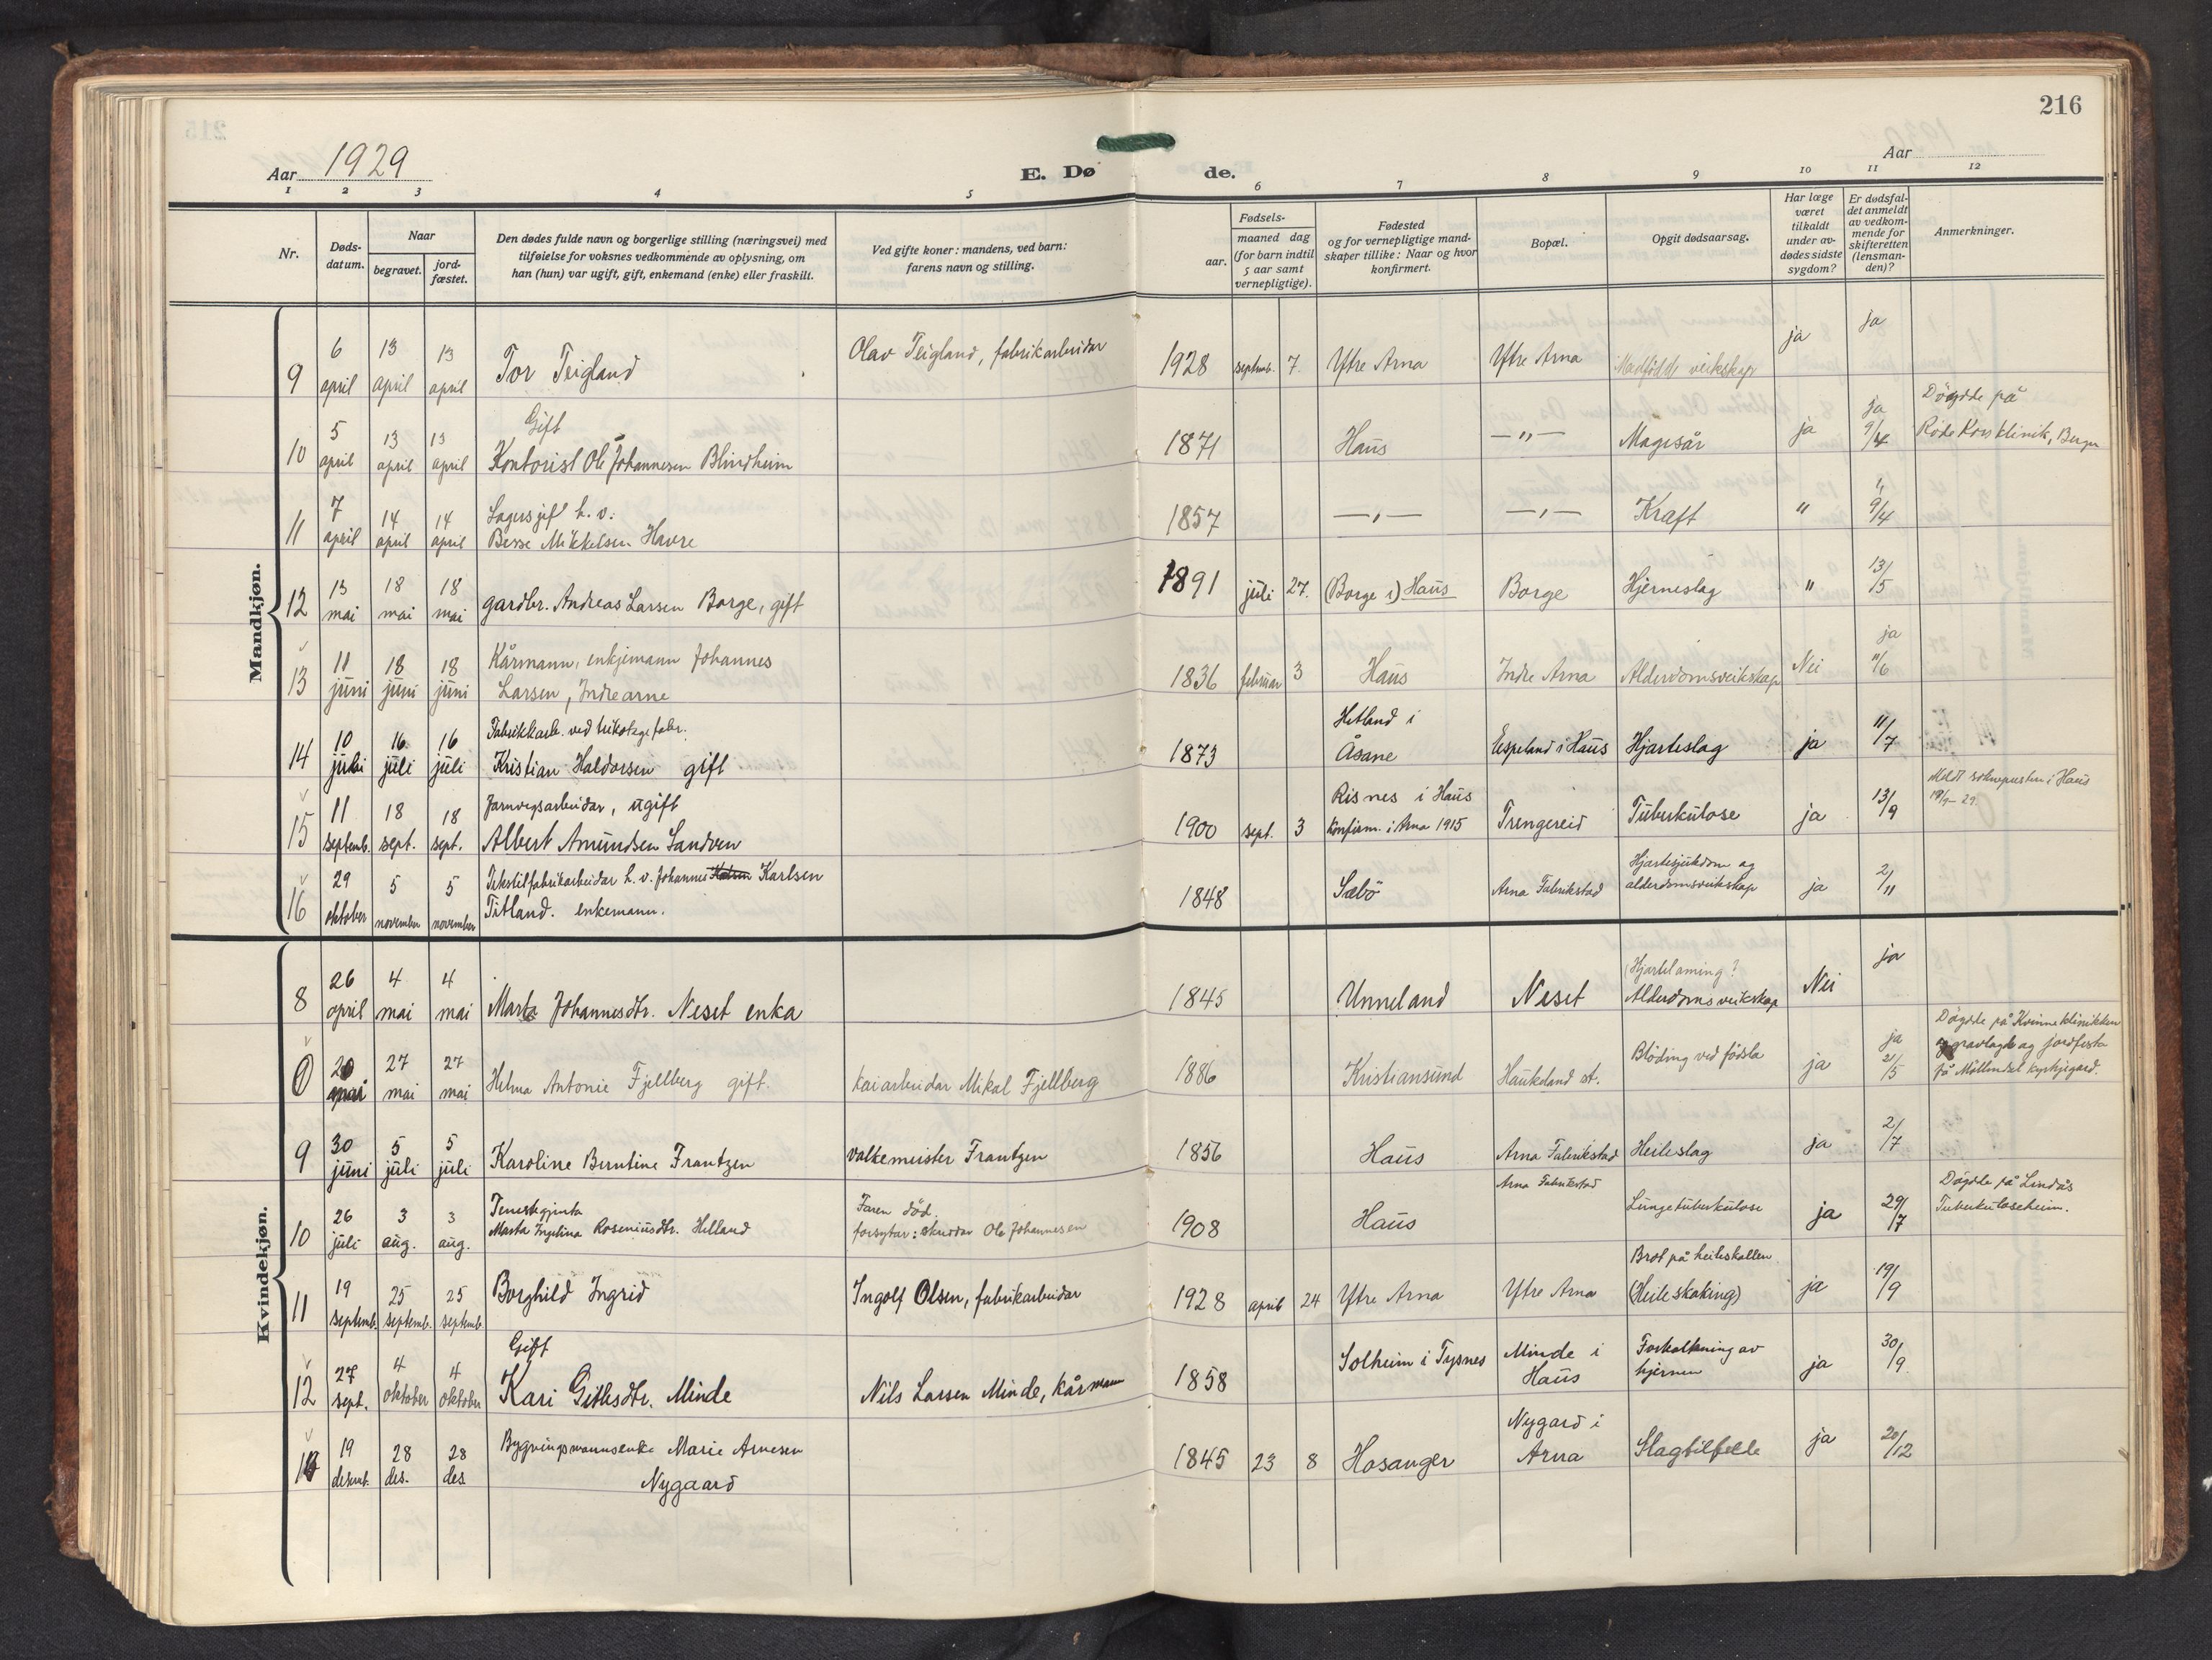 216
Aar 1929
E. Dø
de.
Aar
1 2 3 4 5 6 7 8 9 10 11 12
Nr.
Døds-
datum.
Naar
begravet.
jord-
fæstet.
Den dødes fulde navn og borgerlige stilling (næringsvei) med
tilføielse for voksnes vedkommende av oplysning, om
han (hun) var ugift, gift, enkemand (enke) eller fraskilt.
Ved gifte koner: mandens, ved barn:
farens navn og stilling.
Fødsels-
aar.
maaned dag
(for barn indtil
5 aar samt
vernepligtige).
Fødested
og for vernepligtige mand-
skaper tillike: Naar og hvor
konfirmert.
Bopæl.
Opgit dødsaarsag.
Har læge
været
tilkaldt
under av-
dødes sidste
sygdom?
Er dødsfal-
det anmeldt
av vedkom-
mende for
skifteretten
(lensman-
den)?
Anmerkninger.
Mandkjøn.
9 6 april 13 april 13 april Tor Teigland Olav Teigland, fabrikarbeidar 1928 septemb. 7. Ytre Arna Ytre Arna Medfödde veikskap ja ja
10 5 april 13 april 13 april Gift
Kontorist Ole Johannesen Blindheim 1871 Haus —"— Magesår ja ja 9/4 Döydde på
Røde Kors klinik, Bergen
11 7 april 14 april 14 april Lagersjef h. v.
Besse Mikkelsen Havre 1857 —"— —"— Kraft " " 9/4
12 13 mai 18 mai 18 mai gardbr. Andreas Larsen Borge, gift 1891 juli 27. (Borge i) Haus Borge Hjerneslag " 13/5
13 11 juni 18 juni 18 juni Kårmann, enkjemann Johannes
Larsen, Indre arne 1836 februar 3 Haus Indre Arna Alderdomsveikskap Nei ja 11/6
14 10 juli 16 juli 16 juli Fabrikkarb. ved trikotagefabr.
Kristian Haldorsen gift 1873 Hetland i
Åsane Espeland i Haus Hjarteslag ja 11/7
15 11 septemb. 18 sept. 18 sept. Jarnvegsarbeidar, ugift
Albert Amundsen Sandven 1900 sept. 3 Risnes i Haus
Konfirm. i Arna 1915 Trengereid Tuberkulose ja 13/9 Meldt soknepresten i Haus
16 29 oktober 5 november 5 november Tekstilfabrikarbeidar h. v. Johannes Karlsen
Titland. enkemann. 1848 Sæbö Arna Fabrikstad Hjartesjukdom og
alderdomsveikskap ja 2/11
Kvindekjøn.
8 26 april 4 mai 4 mai Marta Johannesdtr. Neset enka 1845 Unneland Neset (Hjartelaming?
Alderdomsveikskap Nei ja
0 20 mai 27 mai 27 mai Helma Antonie Fjellberg gift. Kaiarbeidar Mikal Fjellberg 1886 Kristiansund Haukeland st. Blöding ved födsla ja ja 21/5 Döydde på Kvinneklinikken
og gravlagd og jordfesta
på Möllendal kyrkjegard.
9 30 juni 5 juli 5 juli Karoline Berntine Frantzen valkemeister Frantzen 1856 Haus Arna Fabrikstad Heileslag ja 2/7
10 26 juli 3 aug. 3 aug. Tenestegjenta
Marta Ingelina Roseniusdtr. Helland Faren död.
forsytar: skreddar Ole Johannesen 1908 Haus Arna Fabrikstad Lungetuberkulose ja 29/7 Döydde på Lindås
Tuberkuloseheim.
11 19 septemb. 25 septemb. 25 septemb. Borghild Ingrid Ingolf Olsen, fabrikarbeidar 1928 april 24 Ytre Arna Ytre Arna Brot på heileskallen
(Heileskaking) ja 19/9
12 27 sept. 4 oktober 4 oktober Gift
Kari Gitlesdtr. Minde Nils Larsen Minde, kårmann 1858 Solheim i Tysnes Minde i
Haus Forkalkning av
hjernen ja 30/9.
13 19 desemb. 28 des. 28 des. Bygningsmannsenke Marie Arnesen
Nygaard 1845 23 8 Hosanger Nygard i
Arna Slagtilfelle ja 20/12